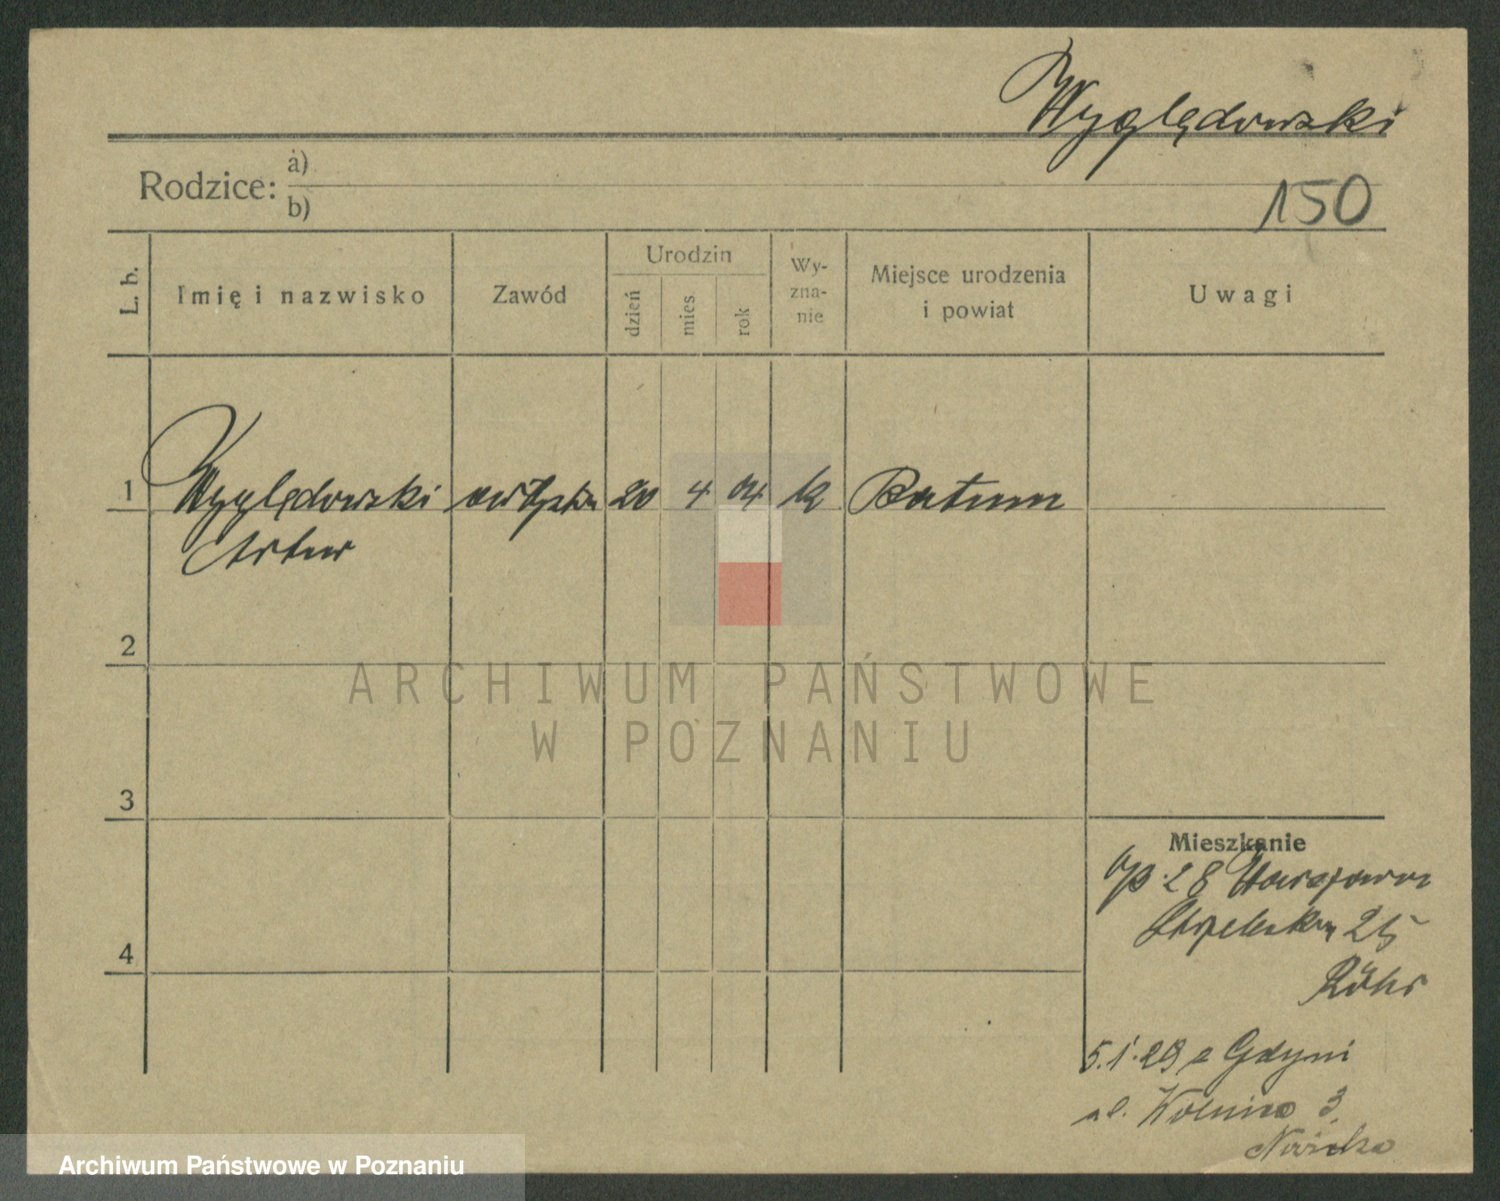 Wyględowski
150
Rodzice: a)
b)
L. b.
Imię i nazwisko
Zawód
Urodzin
dzień
mies.
rok
Wy-
zna-
nie
Miejsce urodzenia
i powiat
Uwagi
1 Wyględowski artysta 20 4 04 k Batum
Artur
2
3
4
Mieszkanie
28
25
Röhr
5.1.29 z Gdyni
ul. 3
ARCHIWUM PAŃSTWOWE
W POZNANIU
Archiwum Państwowe w Poznaniu